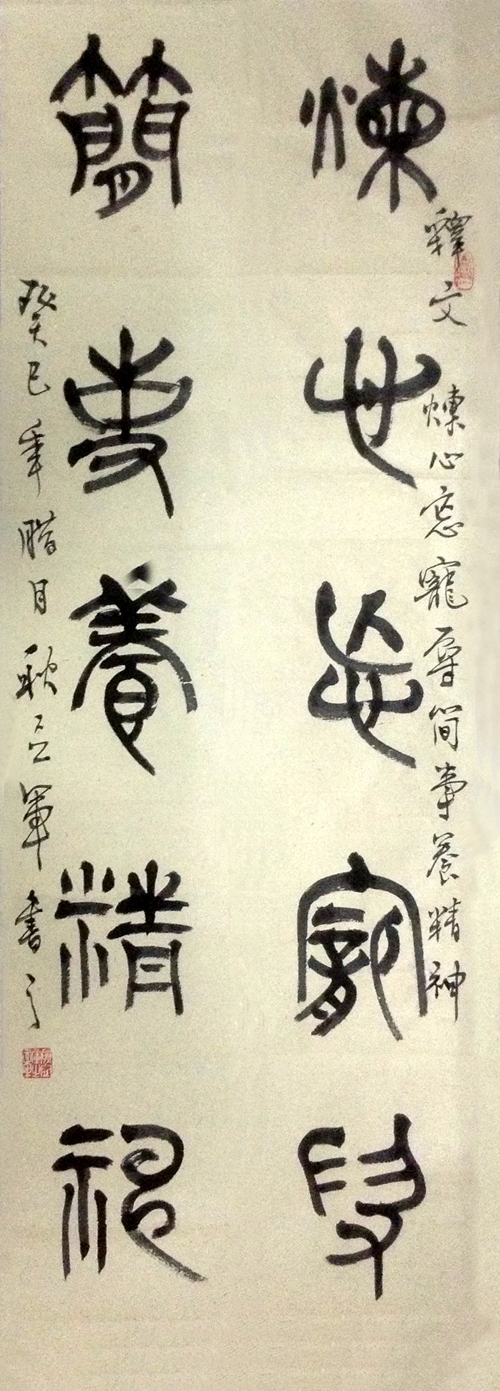 釋文 煉心忘寵辱简事養精神
煉心忘寵辱
簡事養精神
癸巳年腊月耿立軍書之